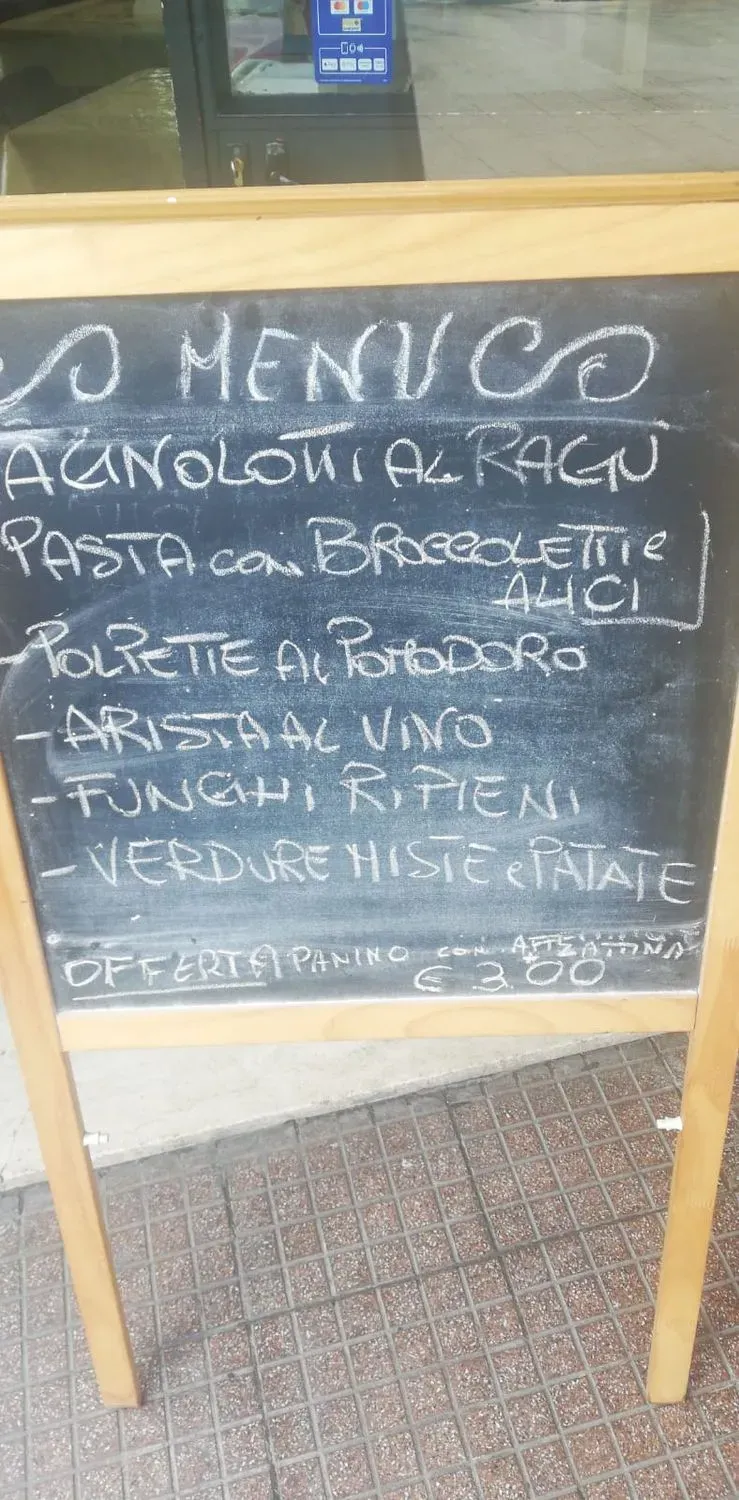 MENU
AGNOLOTTI AL RAGÙ
PASTA con BROCCOLETTI e
ALICI
- POLPETTE AL POMODORO
- ARISTA AL VINO
- FUNGHI RIPIENI
- VERDURE MISTE e PATATE
OFFERTA PANINO con
€ 3.00